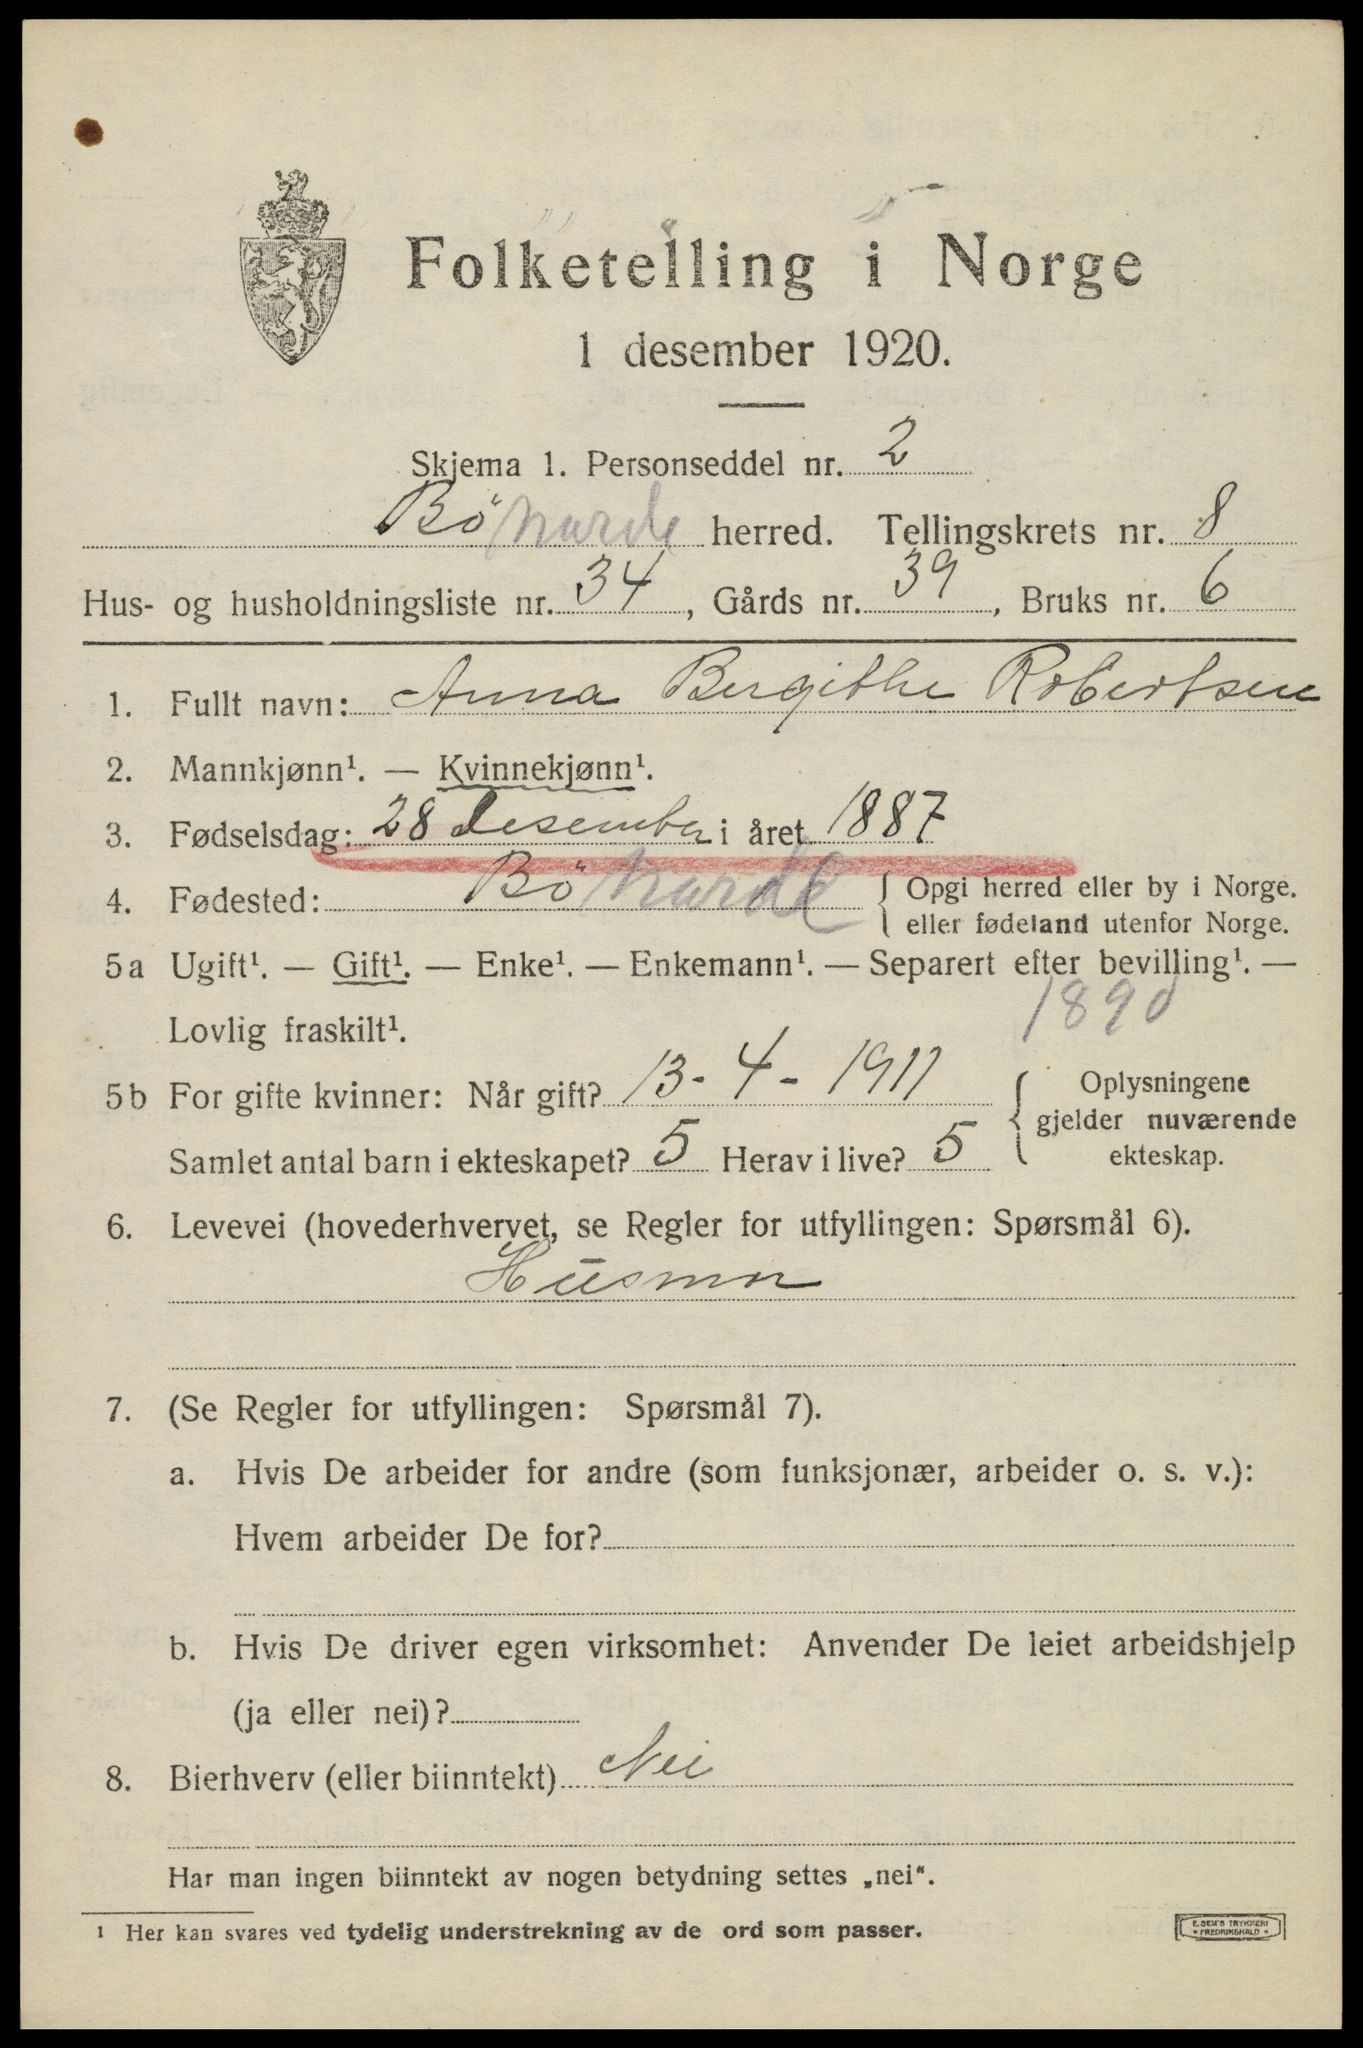 Folketelling i Norge
1 desember 1920.
Skjema 1. Personseddel nr. 2
Bö herred. Tellingskrets nr. 8
Hus- og husholdningsliste nr. 34, Gårds nr. 39, Bruks nr. 6
1. Fullt navn: Anna Bergithe Robertsen
2. Mannkjønn¹. — Kvinnekjønn¹.
3. Fødselsdag: 28 desember i året 1887
4. Fødested: Bö { Opgi herred eller by i Norge.
eller fødeland utenfor Norge.
5a Ugift¹. — Gift¹. — Enke¹. — Enkemann¹. — Separert efter bevilling¹. —
Lovlig fraskilt¹.
5b For gifte kvinner: Når gift? 13-4-1911 { Oplysningene
gjelder nuværende
Samlet antal barn i ekteskapet? 5 Herav i live? 5 ekteskap.
6. Levevei (hovederhvervet, se Regler for utfyllingen: Spørsmål 6).
Husmor
7. (Se Regler for utfyllingen: Spørsmål 7).
a. Hvis De arbeider for andre (som funksjonær, arbeider o. s. v.):
Hvem arbeider De for?
b. Hvis De driver egen virksomhet: Anvender De leiet arbeidshjelp
(ja eller nei)?
8. Bierhverv (eller biinntekt) Nei
Har man ingen biinntekt av nogen betydning settes „nei“.
1 Her kan svares ved tydelig understrekning av de ord som passer.
E. SEM'S TRYKKERI
• FREDRIKSHALD •